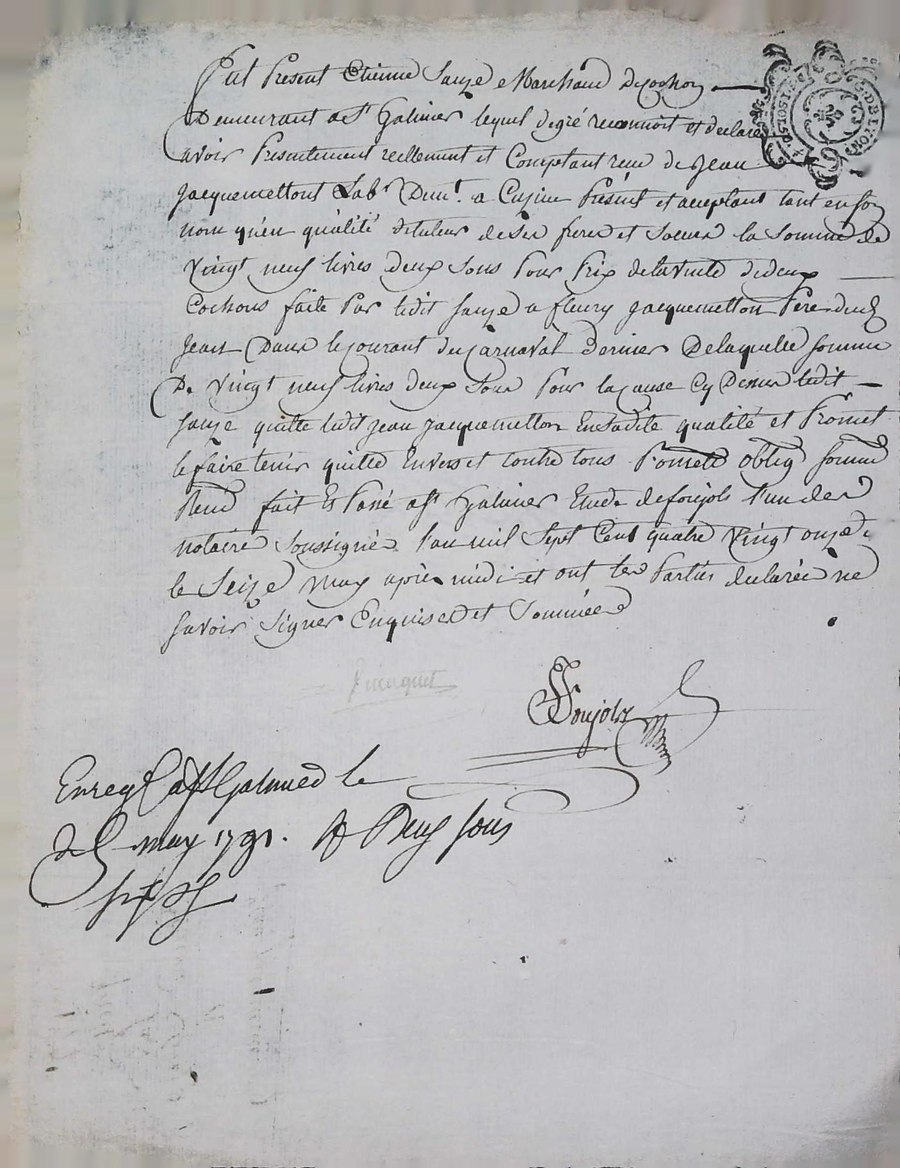 Fut Present Etienne Sauze Marchand de cochon
Demeurant a St Galmier lequel de gré reconnoit et declare
avoir Presentement reellement et Comptant recu de Jean
Jacquemettont Labr Demt. a Cuzieu Présent et acceptant tant en son
nom qu'en quálité de tuteur de ses freres et Soeurs la Somme de
Vingt neuf livres deux sous Pour Prix de la vente de deux
Cochons faite Par ledit Sauze a fleury Jacquemetton Pere dudt
Jean Dans le courant du Carnaval Dernier De laquelle Somme
De Vingt neuf livres deux Sous Pour la cause Cy Dessus ledit
Sauze quitte ledit Jean Jacquemetton En Sadite qualité et Promet
le faire tenir quitte Envers et contre tous Promett oblig Soum
Renõ fait Et Passé a St Galmier Etude de foujols l'un des
notaires Soussignés l'an mil Sept Cent quatre Vingt onze
le Seize May après midi et ont les Parties declarées ne
Savoir Signer Enquises et Sommées
Foujols
Enreg a St Galmier le
May 1791. R Deux sous